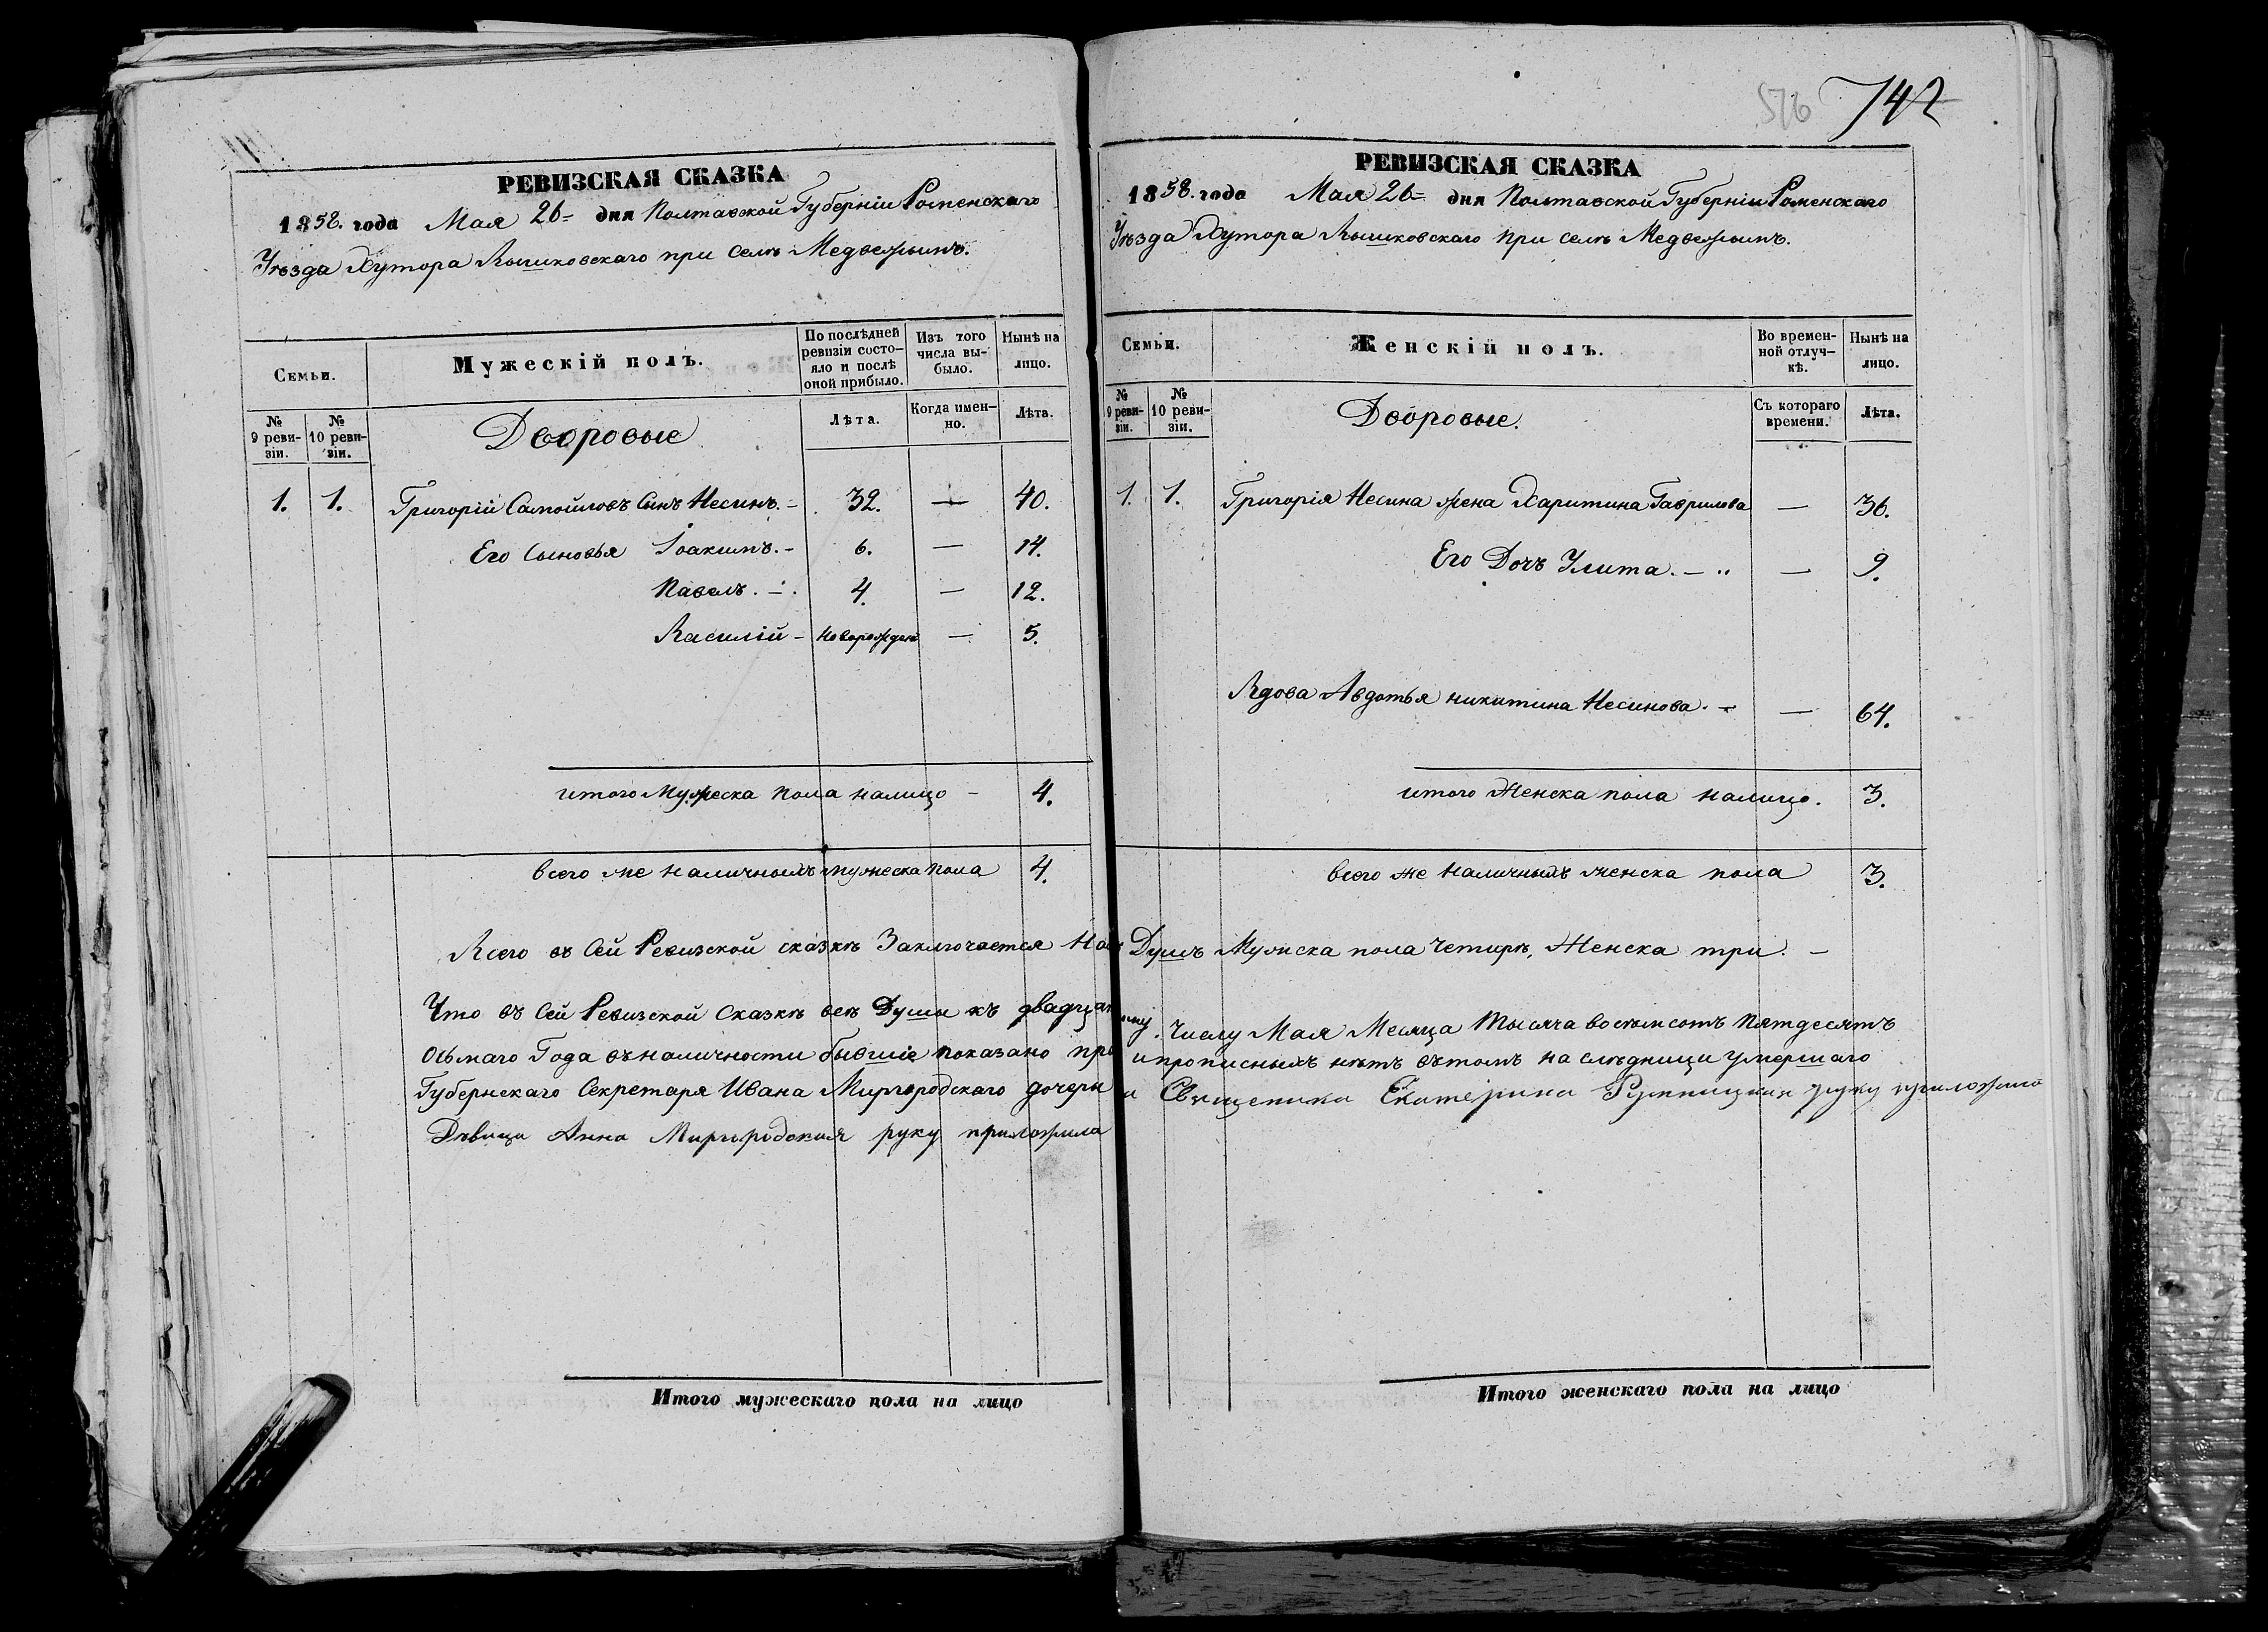 РЕВИЗСКАЯ СКАЗКА
1858. года Мая 26 дня Полтавской Губерніи Роменского
Уѣзда Хутора Вышковскаго при Селѣ Медвежьимъ.
Семьи.
Мужескій полъ.
По послѣдней ревизіи состо-
яло и послѣ
оной прибыло.
Изъ того
числа вы-
было.
Нынѣ на
лицо.
№
9 реви-
зіи.
№
10 реви-
зіи.
Дворовые
Лѣта.
Когда имен-
но.
Лѣта.
1. 1. Григорій Самойловъ Сынъ Несинъ. - 32. — 40.
Его Сыновья Іоакимъ. - 6. — 14.
Павелъ. - 4. — 12.
Василій - новорожден — 5.
итого Мужеска пола налицо - 4.
всего же наличныхъ мужеска пола 4.
Всего въ Сей Ревизской сказкѣ Заключается
Что въ Сей Ревизской Сказкѣ всѣ Души къ
Осьмаго Года въ наличности бывшіе показано
Губернскаго Секретаря Ивана Миргородскаго дочери
Дѣвица Анна Миргородская руку приложила
Итого мужескаго пола на лицо
576 742
РЕВИЗСКАЯ СКАЗКА
1858. года Мая 26 дня Полтавской Губерніи Роменского
Уѣзда Хутора Вышковскаго при Селѣ Медвежьимъ.
Семьи.
Женскій полъ.
Во времен-
ной отлуч-
кѣ.
Нынѣ на
лицо.
№
9 реви-
зіи.
№
10 реви-
зіи.
Дворовые.
Съ котораго
времени.
Лѣта.
1. 1. Григорія Несина жена Харитина Гаврилова — 36.
Его Дочь Улита. - — 9.
Вдова Авдотья никитина Несинова. - — 64.
итого Женска пола налицо. 3.
всего же наличныхъ женска пола 3.
Душъ Мужска пола Четирѣ, Женска три. -
Числу Мая Месяца Тысяча восѣмсотъ Пятдесятъ
ипрописныхъ нѣтъ вътомъ на слѣдници умершаго
Священика Екатерина руку приложила
Итого женскаго пола на лицо